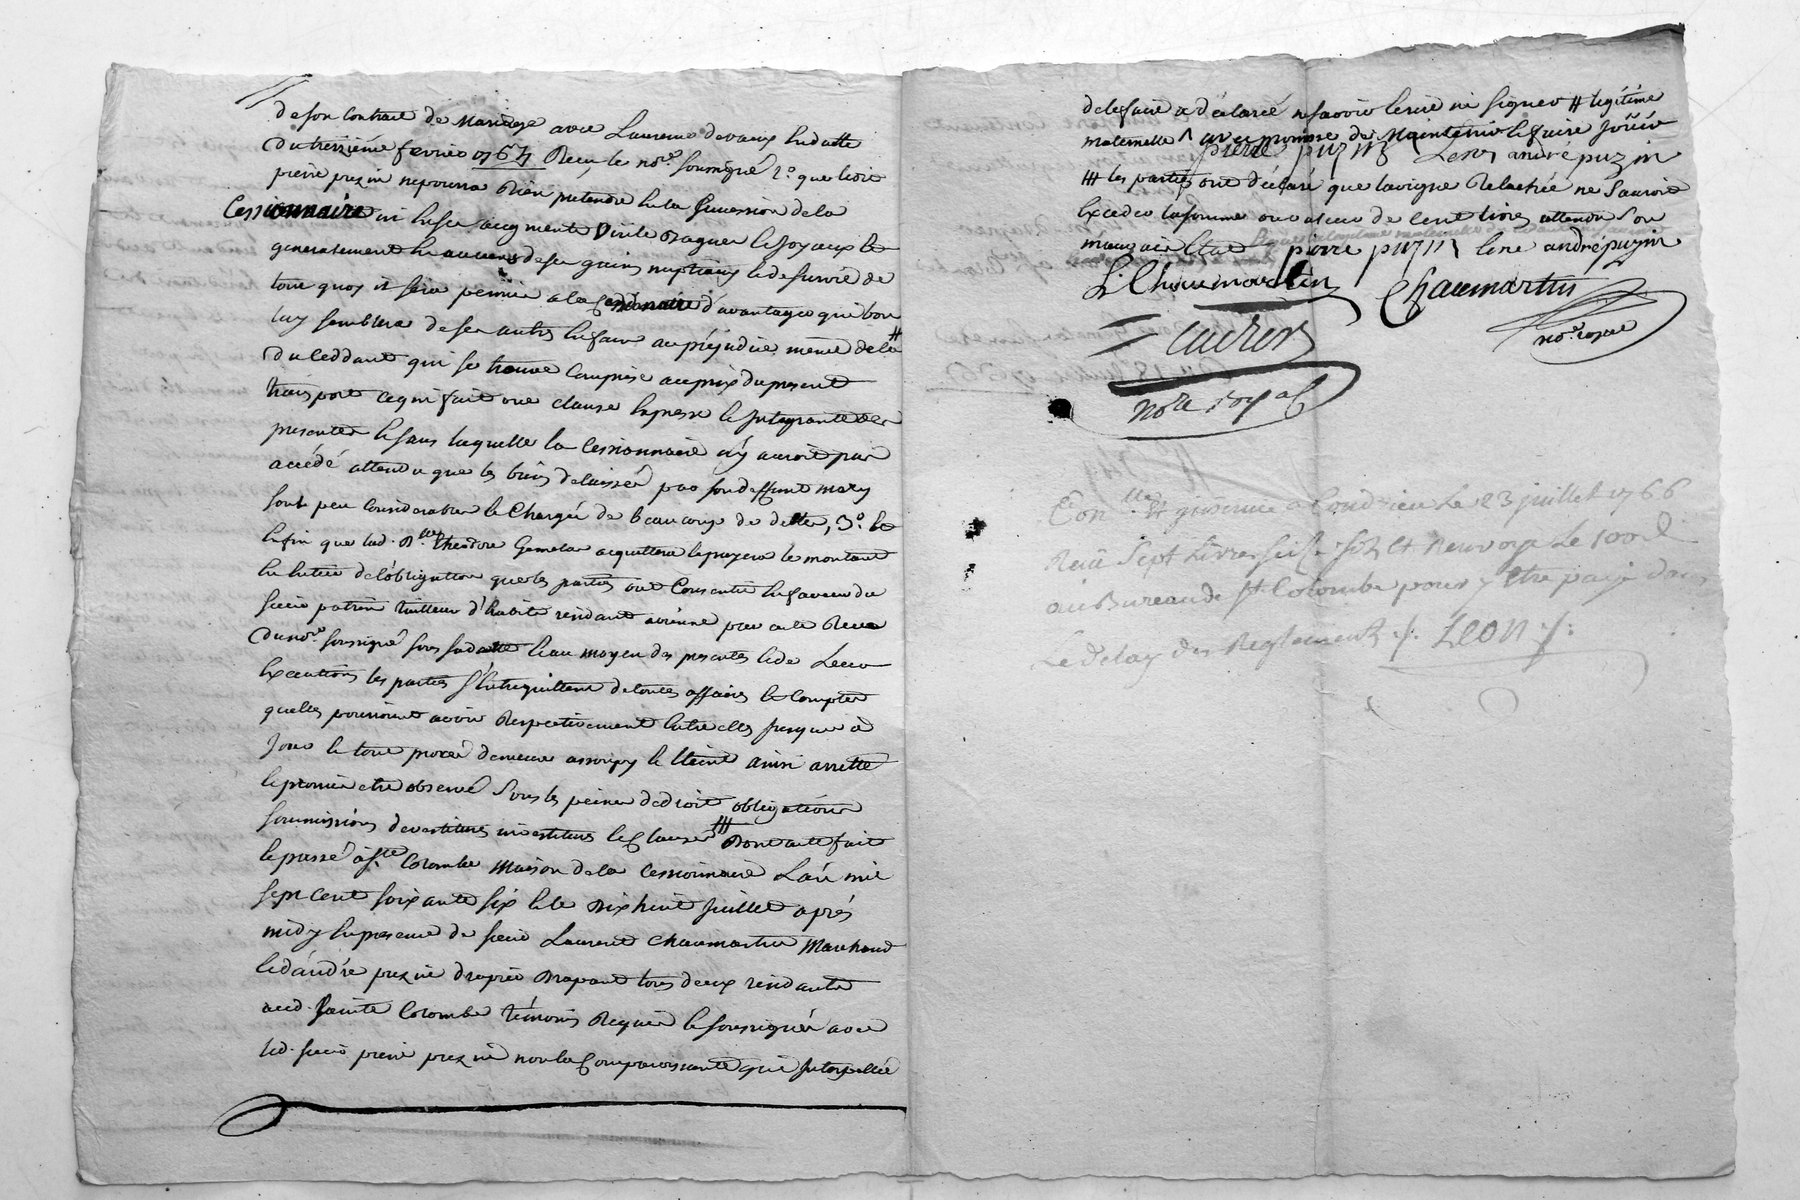 de son contract de mariage avec Laurence devaux en datte
du treizième fevrier 1764 Recu le nore soussigné 2o que ledit
pierre puzin ne pourra Rien pretendre en la succession de la
Cessionnaire ni en ses augments Virile Bagues et Joyaux et
generalement en aucuns de ses gains nuptiaux et de survie de
tout quoy il sera permis a la Cessionnaire d'avantager qui bon
luy semblera de ses autres enfans au préjudice même de la #
du Ceddant qui se trouve Comprise au prix du present
transport ce qui fait une clause expresse et Integrante des
presentes et sans laquelle la Cessionnaire n'y auroit pas
accédé attendu que les biens delaissés par son deffunt mary
sont peu considerables et Chargés de beaucoup de dettes, 3o et
enfin que lad. Dlle theodore Gemelas acquittera et payera le montant
en entier de l'obligation que les parties ont Consentie en faveur du
sieur patrin tailleur d'habits residant a vienne par acte Recu
du nore soussigné sous sa datte et au moyen des presentes et de Leur
Execution les parties s'entrequittent de toutes affaires et Comptes
quelles pourroient avoir Respectivement entre elles jusques a ce
Jour le tout procés demeure assoupy et Eteint ainsi arretté
et promis etre observé sous les peines de droit obligations
soumissions devestitures investitures et Clauses ### Dont acte fait
et passé a Ste Colombe maison de la Cessionnaire L'an mil
sept cent soixante six et le Dix huit Juillet après
midy en presence de sieur Laurent Chaumartin Marchand
et d'andré puzin drapier Drapant tous deux residants
aud. Sainte Colombe témoins Requis et soussignés avec
led. sieur pierre puzin non la Comparoissante qui Interpellée
de le faire a déclaré ne savoir lerire ni signer # legitime
maternelle ^ avec promesse de maintenir et faire Jouir
pierre puzin Lené andré puzin
### les parties ont déclaré que la vigne Relachée ne Sauroit
Exceder la somme ou valeur de Cent livres attendu Son
mauvais Etat pierre puzin lené andré puzin
L. Chaumartin Chaumartin
nore royal
nore royal
Con lle et insinué a Condrieu Le 23 juillet 1766
Recu Sept Livres seize sols et Renvoyé Le 100e d
au Bureau de Ste Colombe pour y Etre payé dans
Le Delay des Reglements ./. Leon ./.